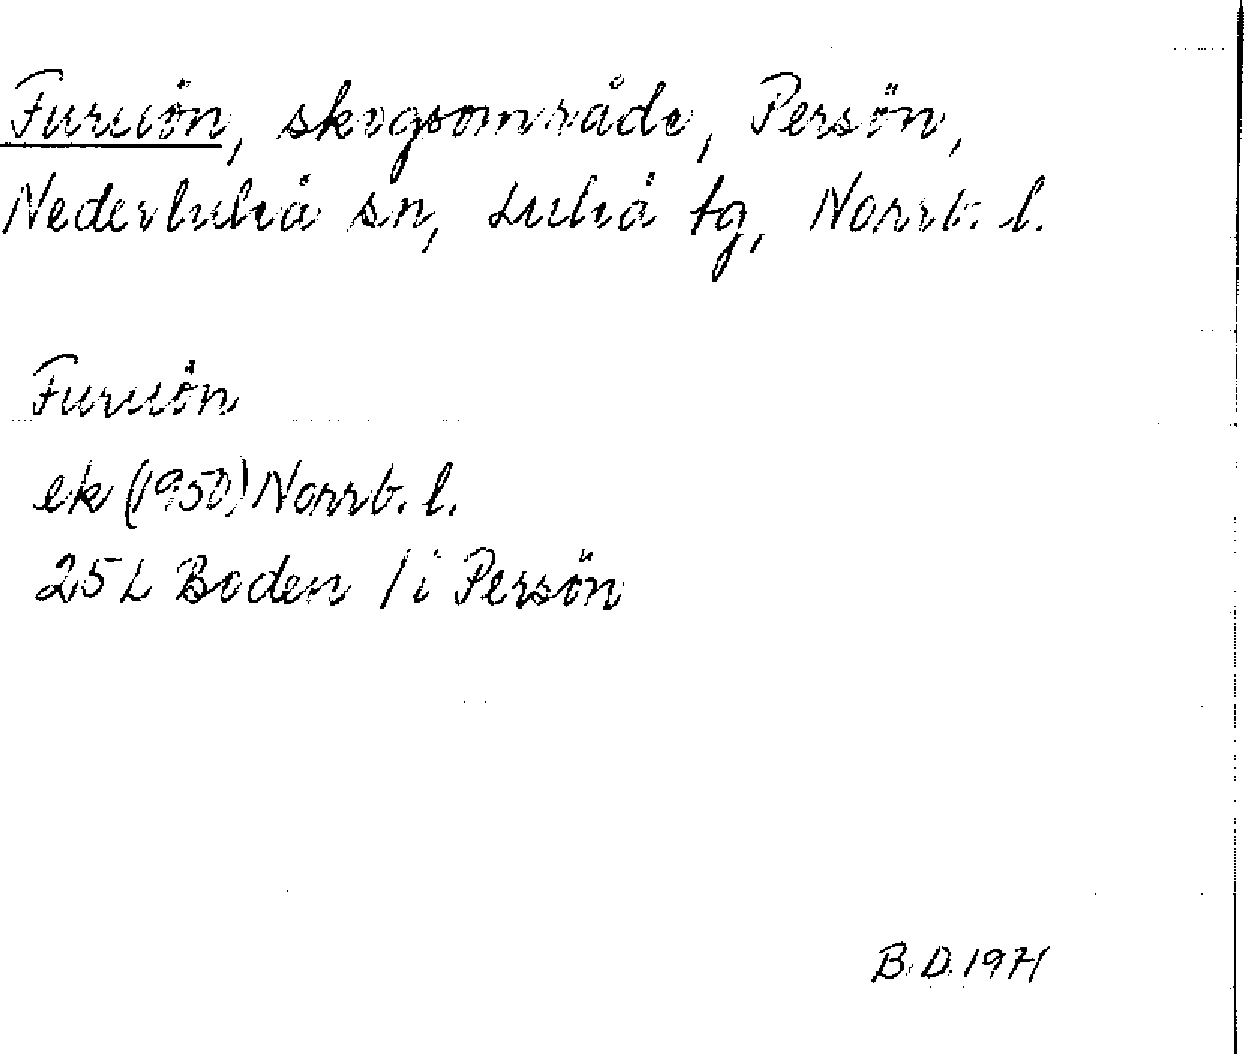 Furuön, skogsområde, Persön,
Nederluleå sn, Luleå tg, Norrb. l.
Furuön
ek (1950) Norrb. l.
25 L Boden / i Persön
B.D. 1971